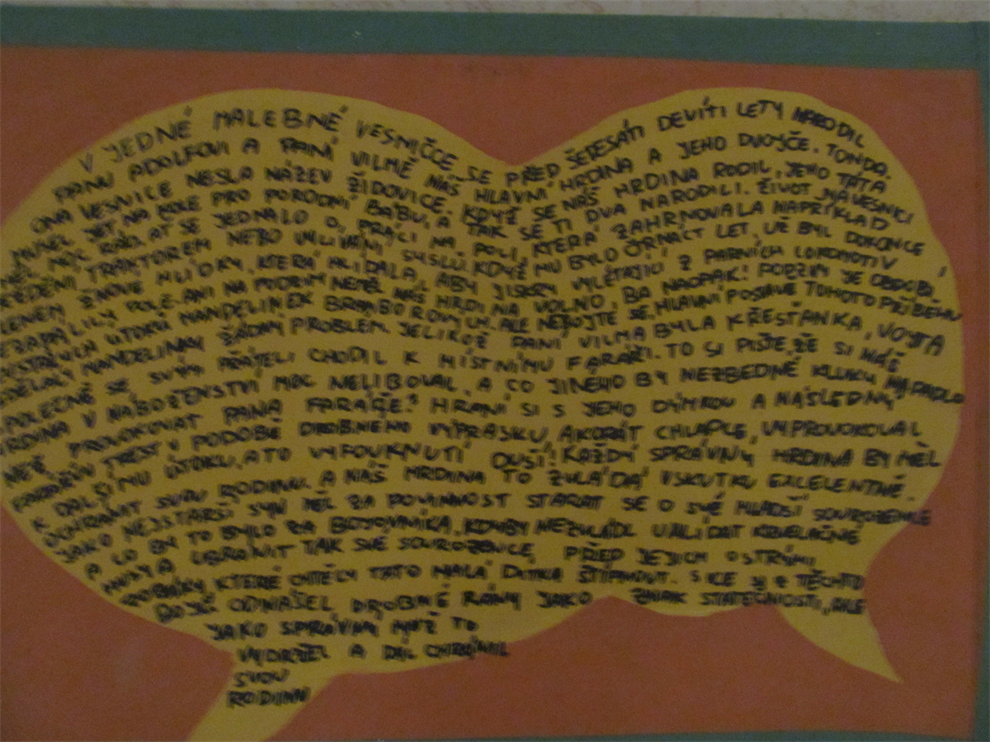 V JEDNÉ MALEBNÉ VESNIČCE SE PŘED ŠEDESÁTI DEVÍTI LETY NARODIL
PANU ADOLFOVI A PANÍ VILMĚ NÁŠ HLAVNÍ HRDINA A JEHO DVOJČE, TONDA.
ONA VESNICE NESLA NÁZEV ŽIDOVICE. KDYŽ SE NÁŠ HRDINA RODIL, JEHO TÁTA
MUSEL JET NA KOLE PRO PORODNÍ BÁBU, A TAK SE TI DVA NARODILI. ŽIVOT NA VESNICI
MOC RÁD, AŤ SE JEDNALO O PRÁCI NA POLI, KTERÁ ZAHRNOVALA NAPŘÍKLAD
JEŽDĚNÍ TRAKTOREM NEBO VYLÍVÁNÍ SYSLŮ. KDYŽ MU BYLO ČRNÁCT LET, UŽ BYL DOKONCE
ČLENEM ŽŇOVÉ HLÍDKY, KTERÁ HLÍDALA, ABY JISKRY VYLÉTAJÍCÍ Z PARNÍCH LOKOMOTIV
NEZAPÁLILY POLE. ANI NA PODZIM NEMĚL NÁŠ HRDINA VOLNO, BA NAOPAK! PODZIM JE OBDOBÍ
ÚTOKŮ MANDELINEK BRAMBOROVÝCH. ALE NEBOJTE SE, HLAVNÍ POSTAVĚ TOHOTO PŘÍBĚHU
NEDĚLALY MANDELINKY ŽÁDNÝ PROBLÉM. JELIKOŽ PANÍ VILMA BYLA KŘESŤANKA, VOJTA
SPOLEČNĚ SE SVÝMI PŘÁTELI CHODIL K MÍSTNÍMU FARÁŘI. TO SI PIŠTE, ŽE SI NÁŠ
HRDINA V NÁBOŽENSTVÍ MOC NELIBOVAL. A CO JINÉHO BY NEZBEDNÉ KLUKY NAPADLO
NEŽ PROVOKOVAT PANA FARÁŘE? HRANÍ SI S JEHO DÝMKOU A NÁSLEDNÝ
FARÁŘŮV TREST V PODOBĚ DROBNÉHO VÝPRASKU, AKORÁT CHLAPCE VYPROVOKOVAL
K DALŠÍMU ÚTOKU, A TO VYFOUKNUTÍ DUŠÍ! KAŽDÝ SPRÁVNÝ HRDINA BY MĚL
OCHRÁNIT SVOU RODINU A NÁŠ HRDINA TO ZVLÁDÁ VSKUTKU EXCELENTNĚ.
JAKO NEJSTARŠÍ SYN MĚL ZA POVINNOST STARAT SE O SVÉ MLADŠÍ SOUROZENCE
A CO BY TO BYLO ZA BOJOVNÍKA, KDYBY NEZVLÁDL
A UBRÁNIT TAK SVÉ SOUROZENCE PŘED JEJICH OSTRÝMI
ZOBÁKY, KTERÉ CHTĚLY TATO MALÁ DÍTKA ŠTÍPNOUT. SICE Z TĚCHTO
BOJŮ ODNÁŠEL DROBNÉ RÁNY JAKO ZNAK STATEČNOSTI, ALE
JAKO SPRÁVNÝ MUŽ TO
VYDRŽEL A DÁL CHRÁNIL
SVOU
RODINU